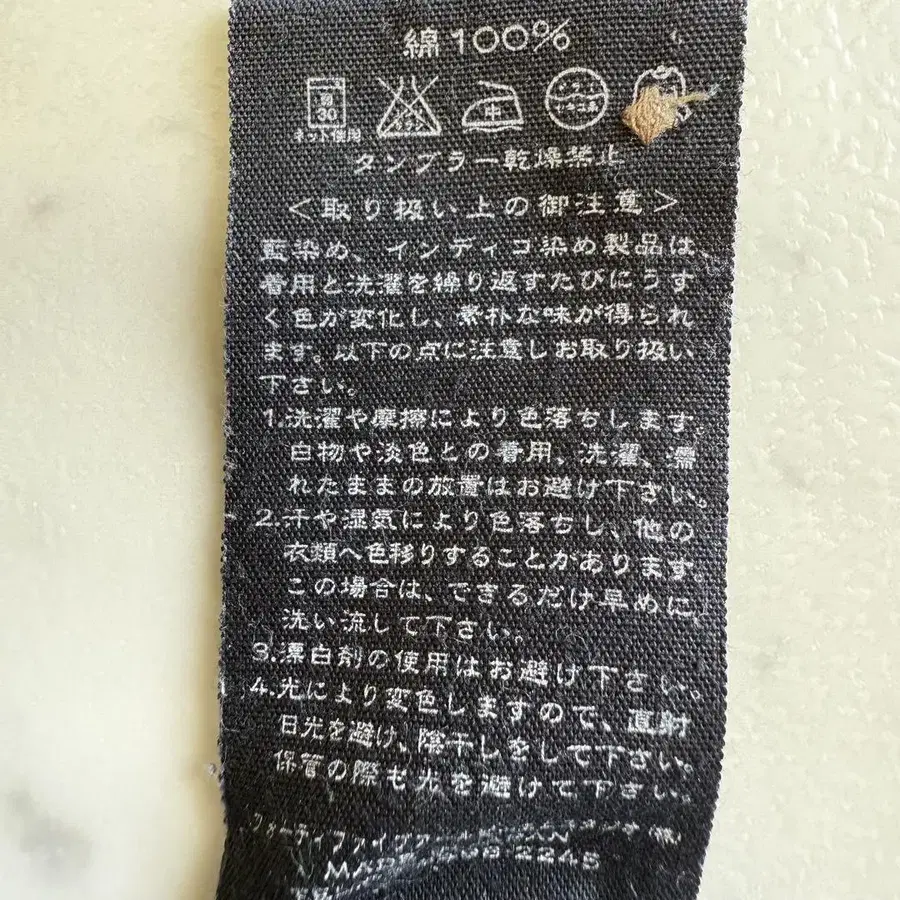 綿100%
弱
30
ネット使用
エンソサラシ
中
ドライ
セキユ系
タンブラー乾燥禁止
<取り扱い上の御注意>
藍染め、インディゴ染め製品は、
着用と洗濯を繰り返すたびにうす
く色が変化し、素朴な味が得られ
ます。以下の点に注意しお取り扱い
下さい。
1.洗濯や摩擦により色落ちします。
白物や淡色との着用、洗濯、濡
れたままの放置はお避け下さい。
2.汗や湿気により色落ちし、他の
衣類へ色移りすることがあります。
この場合は、できるだけ早めに、
洗い流して下さい。
3.漂白剤の使用はお避け下さい。
4.光により変色しますので、直射
日光を避け、陰干しをして下さい。
保管の際も光を避けて下さい。